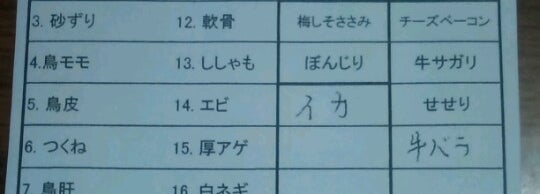 3. 砂ずり 12. 軟骨 梅しそささみ チーズベーコン
4.鳥モモ 13. ししゃも ぼんじり 牛サガリ
5. 鳥皮 14. エビ イカ せせり
6. つくね 15. 厚アゲ 牛バラ
7. 鳥肝 16. 白ネギ